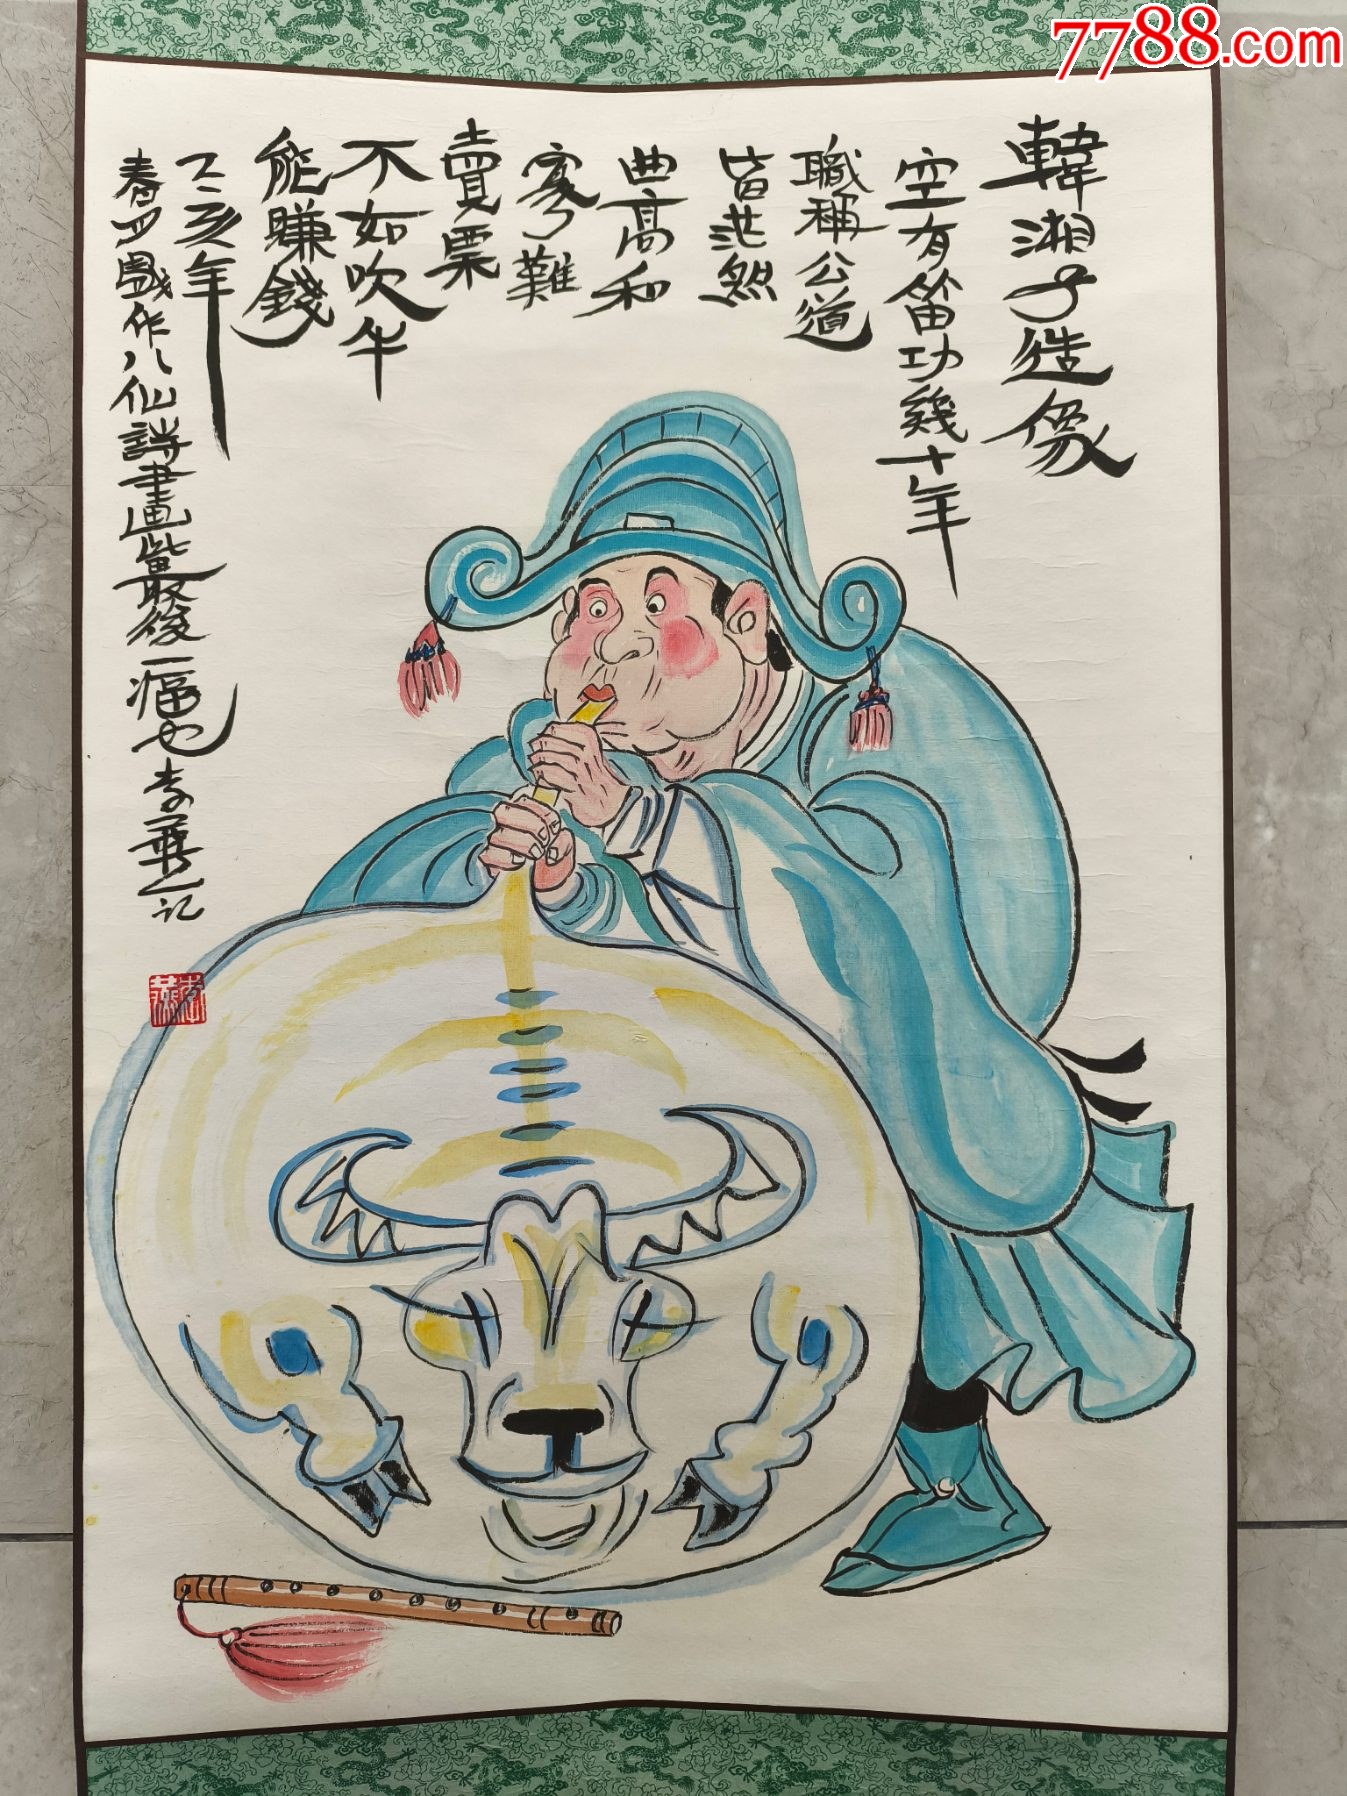 7788.com
韓湘子造像
空有笛功幾十年
職稱公道
皆茫然
曲高和
寡難
賣票
不如吹牛
能賺錢
亥年
春戲作八仙詩書畫最後一幅也李燕記
李燕